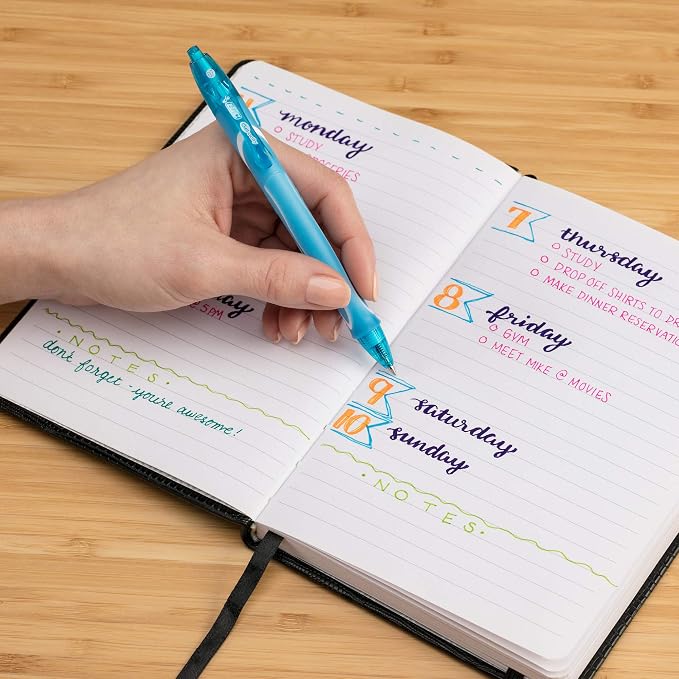 monday
STUDY
GROCERIES
day
5PM
NOTES
don't forget - you're awesome!
7
thursday
STUDY
DROP OFF SHIRTS TO
MAKE DINNER RESERVATION
8
friday
GYM
MEET MIKE @ MOVIES
9
saturday
10
sunday
NOTES